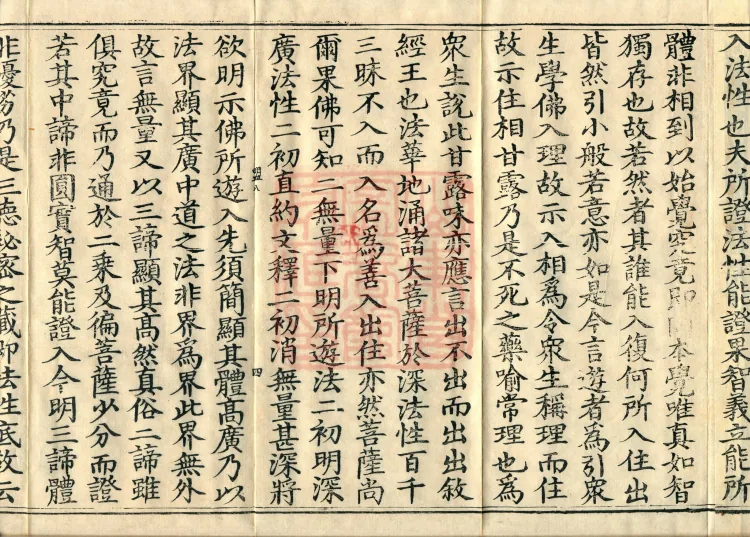 入法性也夫所證法性能證果智義立能所
體非相到以始覺究竟即同本覺唯真如智
獨存也故若然者其誰能入復何所入住出
皆然引小般若意亦如是今言遊者爲引衆
生學佛入理故示入相爲令衆生稱理而住
故示住相甘露乃是不死之藥喻常理也爲
衆生說此甘露味亦應言出不出而出出敘
經王也法華地涌諸大菩薩於深法性百千
三昧不入而入名爲善入出住亦然菩薩尚
爾果佛可知二無量下明所遊法二初明深
廣法性二初直約文釋二初消無量甚深將
四
欲明示佛所遊入先須簡顯其體高廣乃以
法界顯其廣中道之法非界爲界此界無外
故言無量又以三諦顯其高然真俗二諦雖
俱究竟而乃通於二乘及徧菩薩少分而證
若其中諦非圓實智莫能證入今明三諦體
非優劣乃是三德祕密之藏即法生底故云